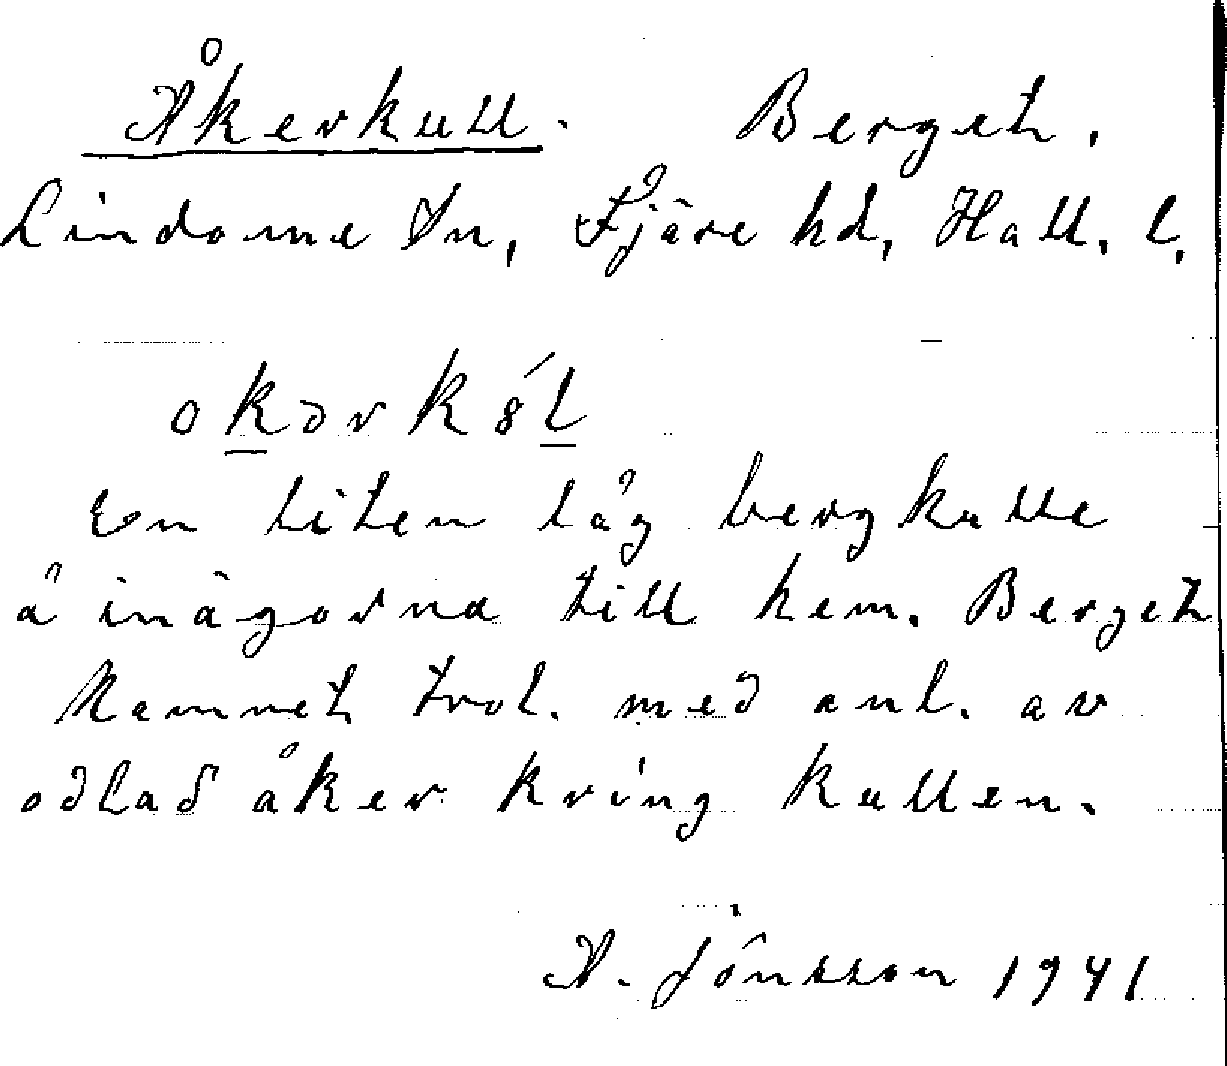 Åkerkull. Berget.
Lindome sn, Fjäre hd, Hall. l.
okərk8́l
En liten låg bergkulle
å inägorna till hem. Berget
Namnet trol. med anl. av
odlad åker kring kullen.
A. Jönsson 1941